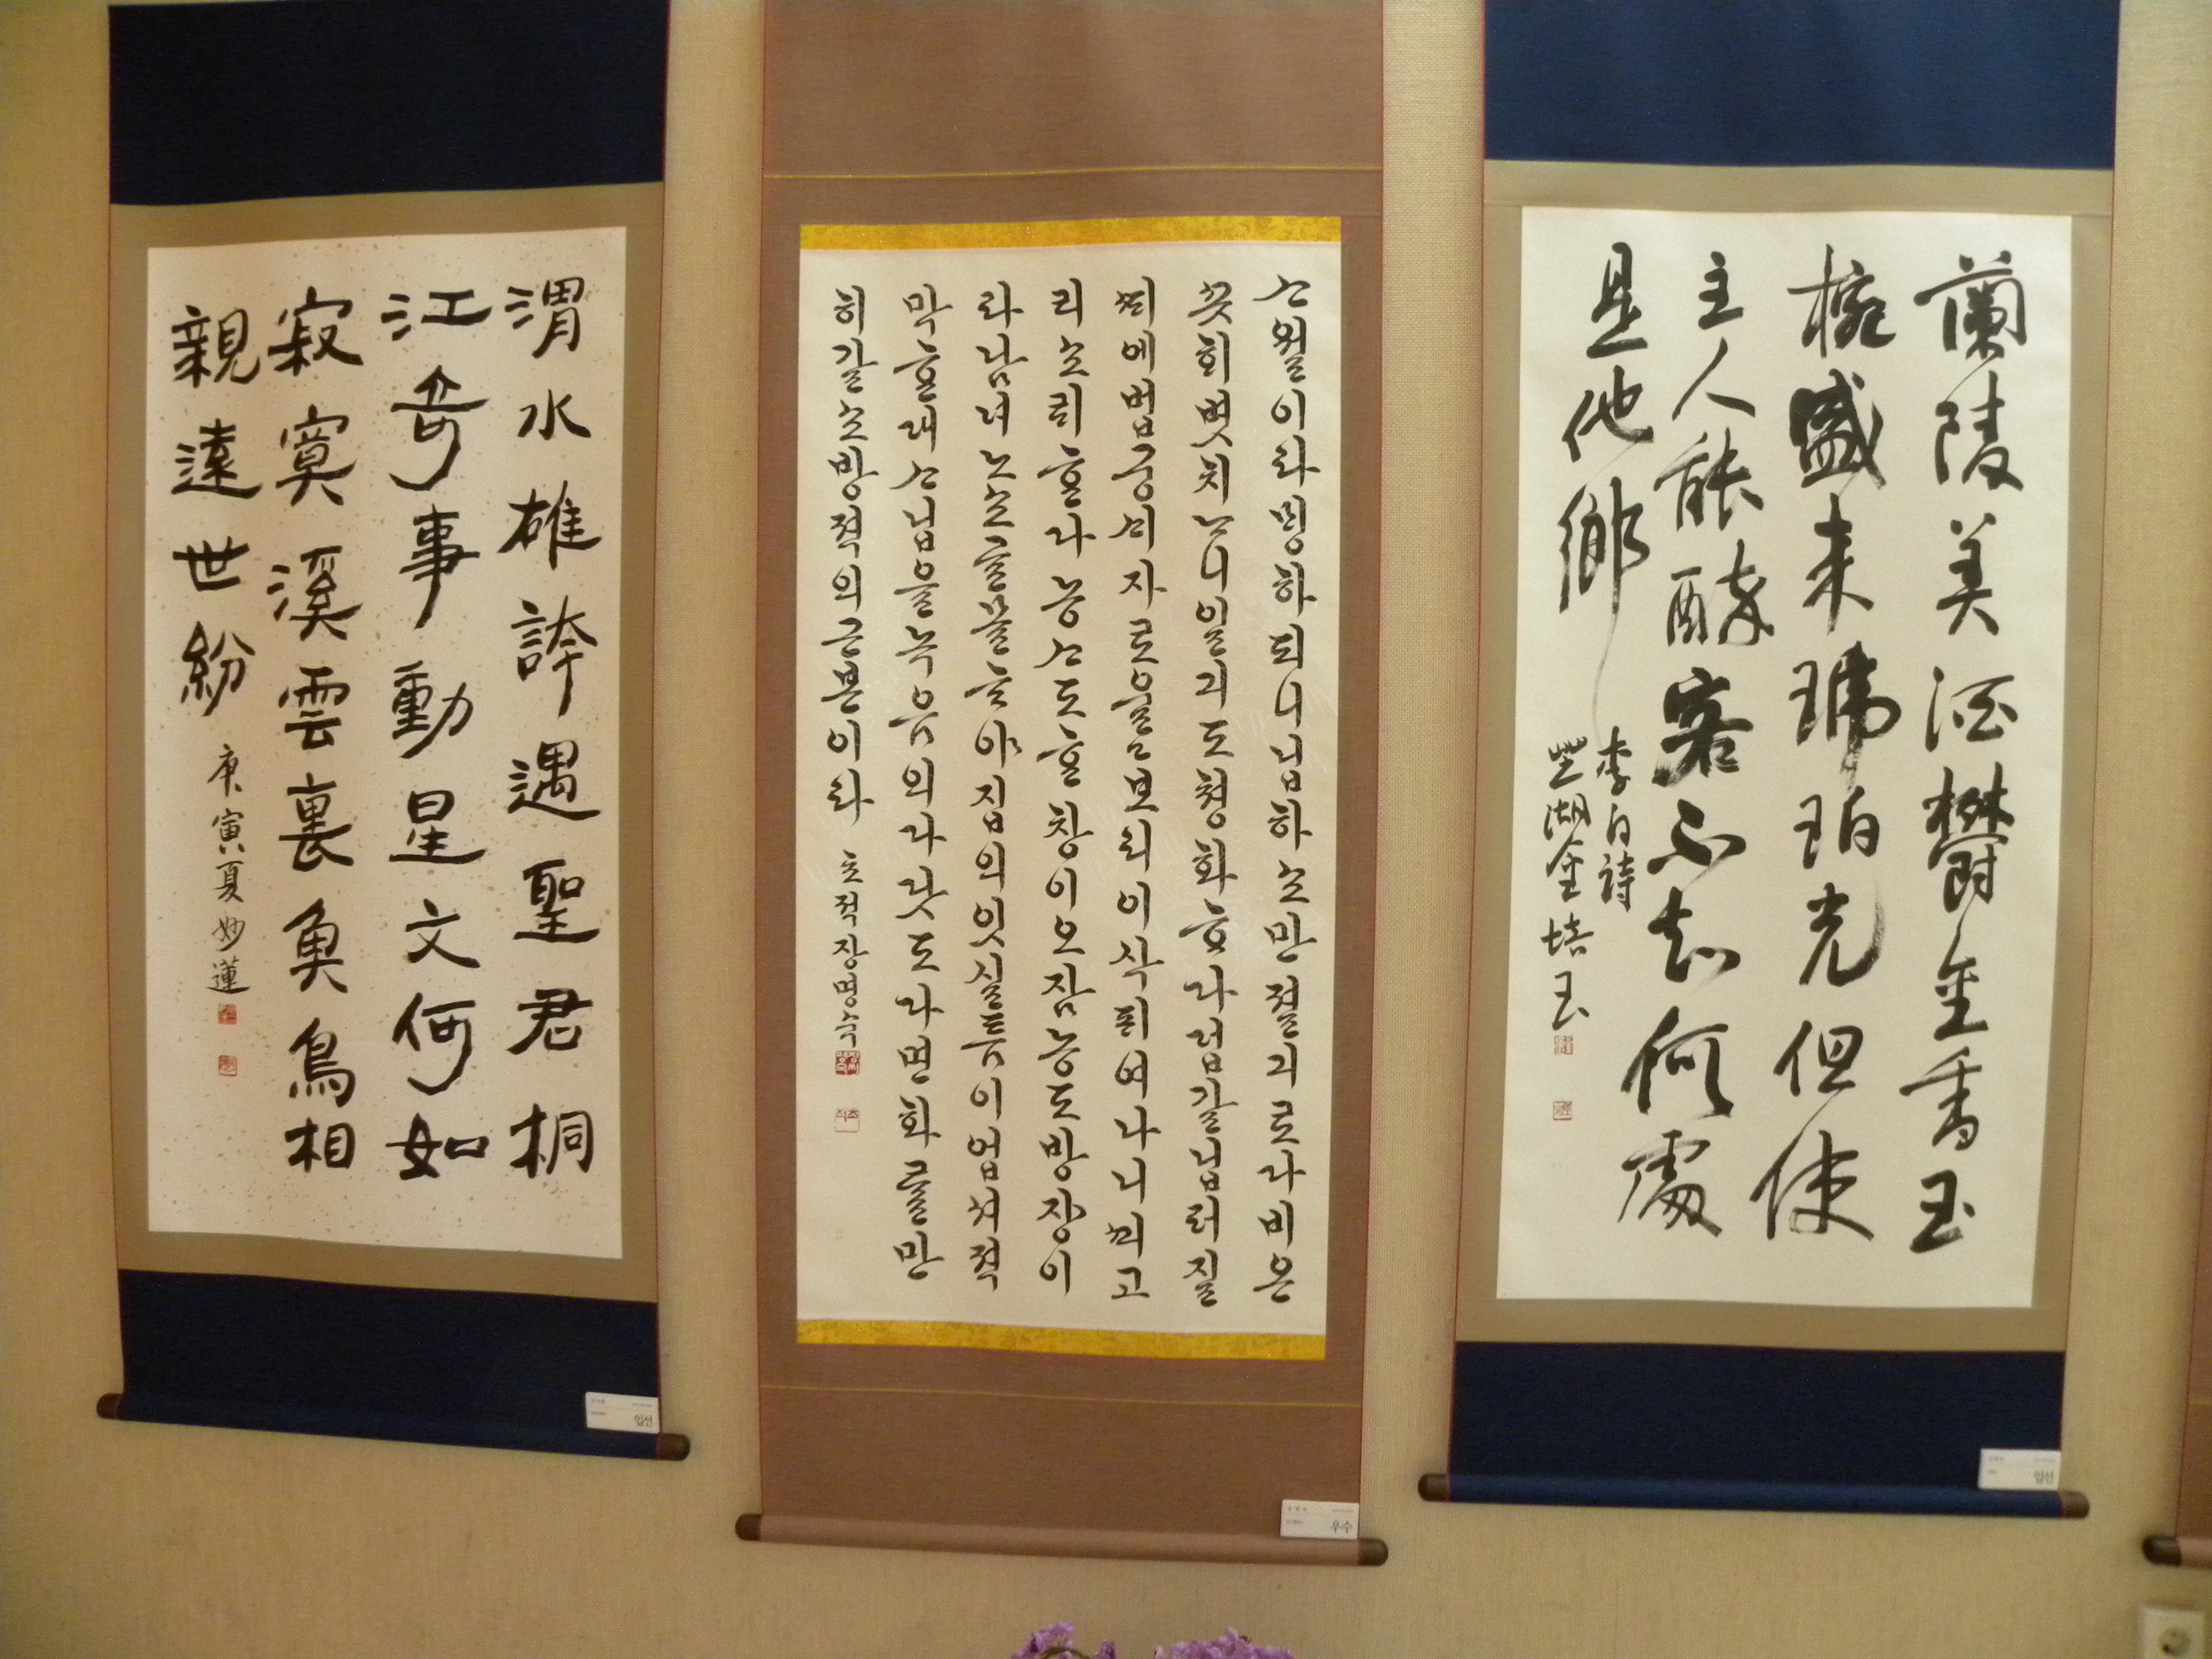 渭水雄誇遇聖君桐
江奇事動星文何如
寂寞溪雲裏魚鳥相
親遠世紛
庚寅夏妙蓮
ᄉ월이라밍하되니닙하소만졀긔로다비온
ᄭᅳᆺ희볏치ᄂᆞ니일긔도청화ᄒᆞ다ᄯᅥᆨ갈닙퍼질
ᄯᅢ에벅궁ᄉᆡ자로울고보리이삭픠여나니ᄭᅬᄭᅩ
리소ᄅᆡᄒᆞᆫ다농ᄉᆞ도ᄒᆞᆫ창이오잠농도방장이
라남녀노소골몰ᄒᆞ야집의잇실틈이업셔젹
막ᄒᆞᆫ대ᄉᆞ립을녹음의다닷도다면화를만
히갈소방젹의근본이라
초적장명숙
우수
蘭陵美酒鬱金香玉
椀盛來琥珀光但使
主人能醉客不知何處
是他鄉
李白詩
芝湖金培玉
입선
입선